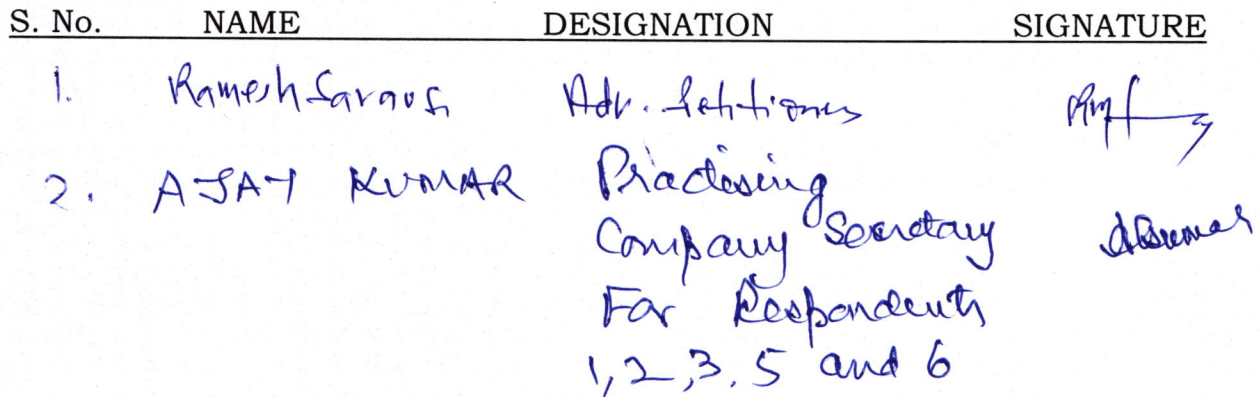 S. No. NAME DESIGNATION SIGNATURE
1. Ramesh Saraogi Adv. Petitioners
2. AJAY KUMAR Practising
Company Secretary AKumar
For Respondents
1, 2, 3, 5 and 6